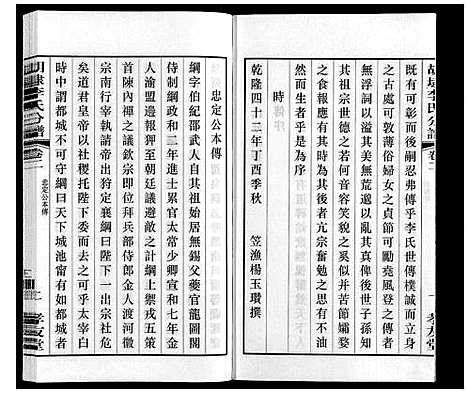 既有可彰而後嗣忍弗傳乎李氏世傳樸誠而立身
之古處可敦訓婦女之貞節尤勵志風足登之傳者
無浮詞以溢其美無荒遠以誤其眞後世子孫知
其祖宗世德之若何音容笑貌之奚似并苦節孀婺
之更不可沒於是相與有亢宗奮勉之思則有以傳
然而生者乎是為序
時
乾隆四十二年丁酉季秋
笠漁楊玉瓚撰
忠定公本傳
綱字伯紀邵武人自其祖始居無錫父夔官龍圖閣
侍制綱政和二年進士累官太常少卿宣和七年金
人渝盟邊報狎至朝廷議避敵之計綱上禦戎五策
首陳內禪之議欽宗即位拜兵部侍郎金人渡河徽
宗南行宰執請帝出襄鄧綱曰陛下一出宗社危
矣道君皇帝以社稷托陛下委而去之可乎太宰白
時中謂都城不可守綱曰天下城池甯有如都城者
胡埭李氏分譜
卷二
忠定公本傳
孝友堂